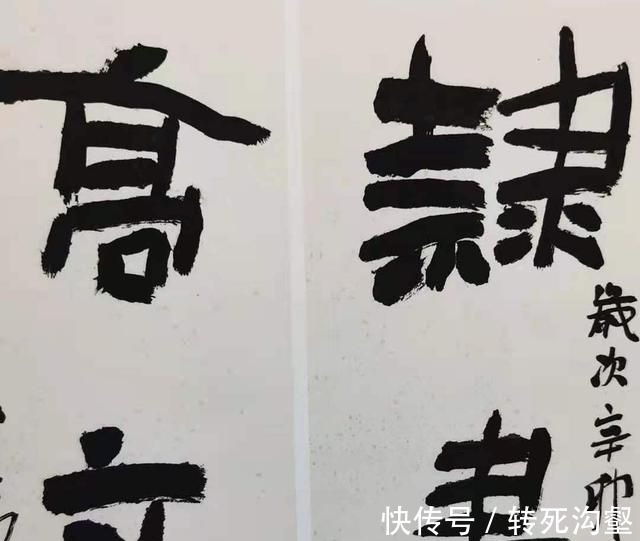 歲次辛卯
隸書
高
快传号 / 转死沟壑